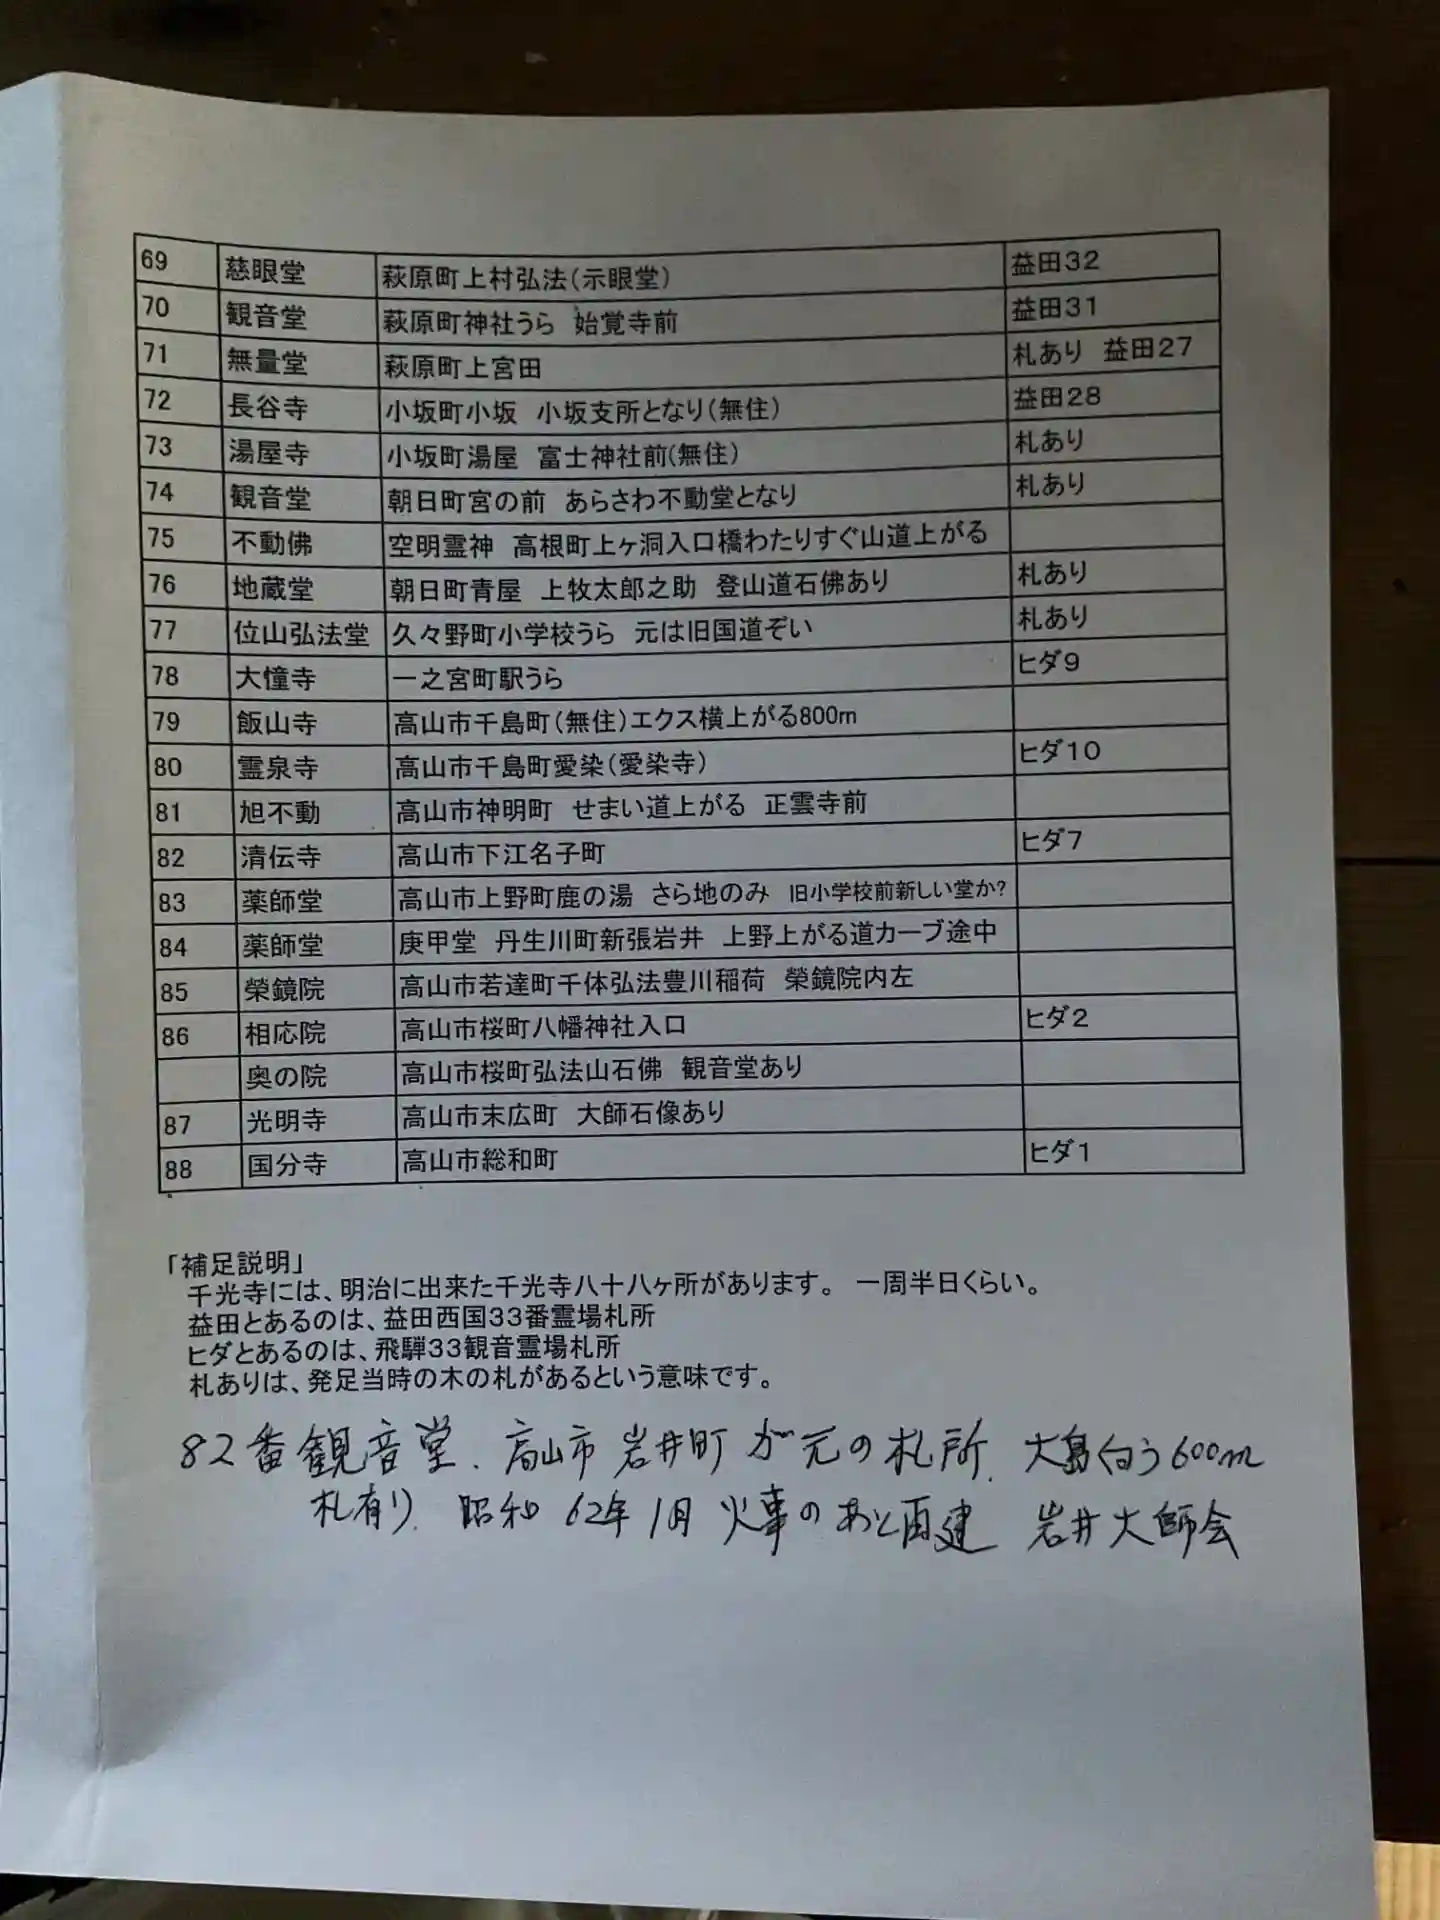 69 慈眼堂 萩原町上村弘法(示眼堂) 益田32
70 観音堂 萩原町神社うら 始覚寺前 益田31
71 無量堂 萩原町上宮田 札あり 益田27
72 長谷寺 小坂町小坂 小坂支所となり(無住) 益田28
73 湯屋寺 小坂町湯屋 富士神社前(無住) 札あり
74 観音堂 朝日町宮の前 あらさわ不動堂となり 札あり
75 不動佛 空明霊神 高根町上ヶ洞入口橋わたりすぐ山道上がる
76 地蔵堂 朝日町青屋 上牧太郎之助 登山道石佛あり 札あり
77 位山弘法堂 久々野町小学校うら 元は旧国道ぞい 札あり
78 大憧寺 一之宮町駅うら ヒダ9
79 飯山寺 高山市千島町(無住)エクス横上がる800m
80 霊泉寺 高山市千島町愛染(愛染寺) ヒダ10
81 旭不動 高山市神明町 せまい道上がる 正雲寺前
82 清伝寺 高山市下江名子町 ヒダ7
83 薬師堂 高山市上野町鹿の湯 さら地のみ 旧小学校前新しい堂か?
84 薬師堂 庚甲堂 丹生川町新張岩井 上野上がる道カーブ途中
85 榮鏡院 高山市若達町千体弘法豊川稲荷 榮鏡院内左
86 相応院 高山市桜町八幡神社入口 ヒダ2
奥の院 高山市桜町弘法山石佛 観音堂あり
87 光明寺 高山市末広町 大師石像あり
88 国分寺 高山市総和町 ヒダ1
「補足説明」
千光寺には、明治に出来た千光寺八十八ヶ所があります。 一周半日くらい。
益田とあるのは、益田西国33番霊場札所
ヒダとあるのは、飛騨33観音霊場札所
札ありは、発足当時の木の札があるという意味です。
82番観音堂、高山市 岩井町 が元の札所、大島向う600m
札有り、昭和62年1月 火事のあと再建 岩井大師会